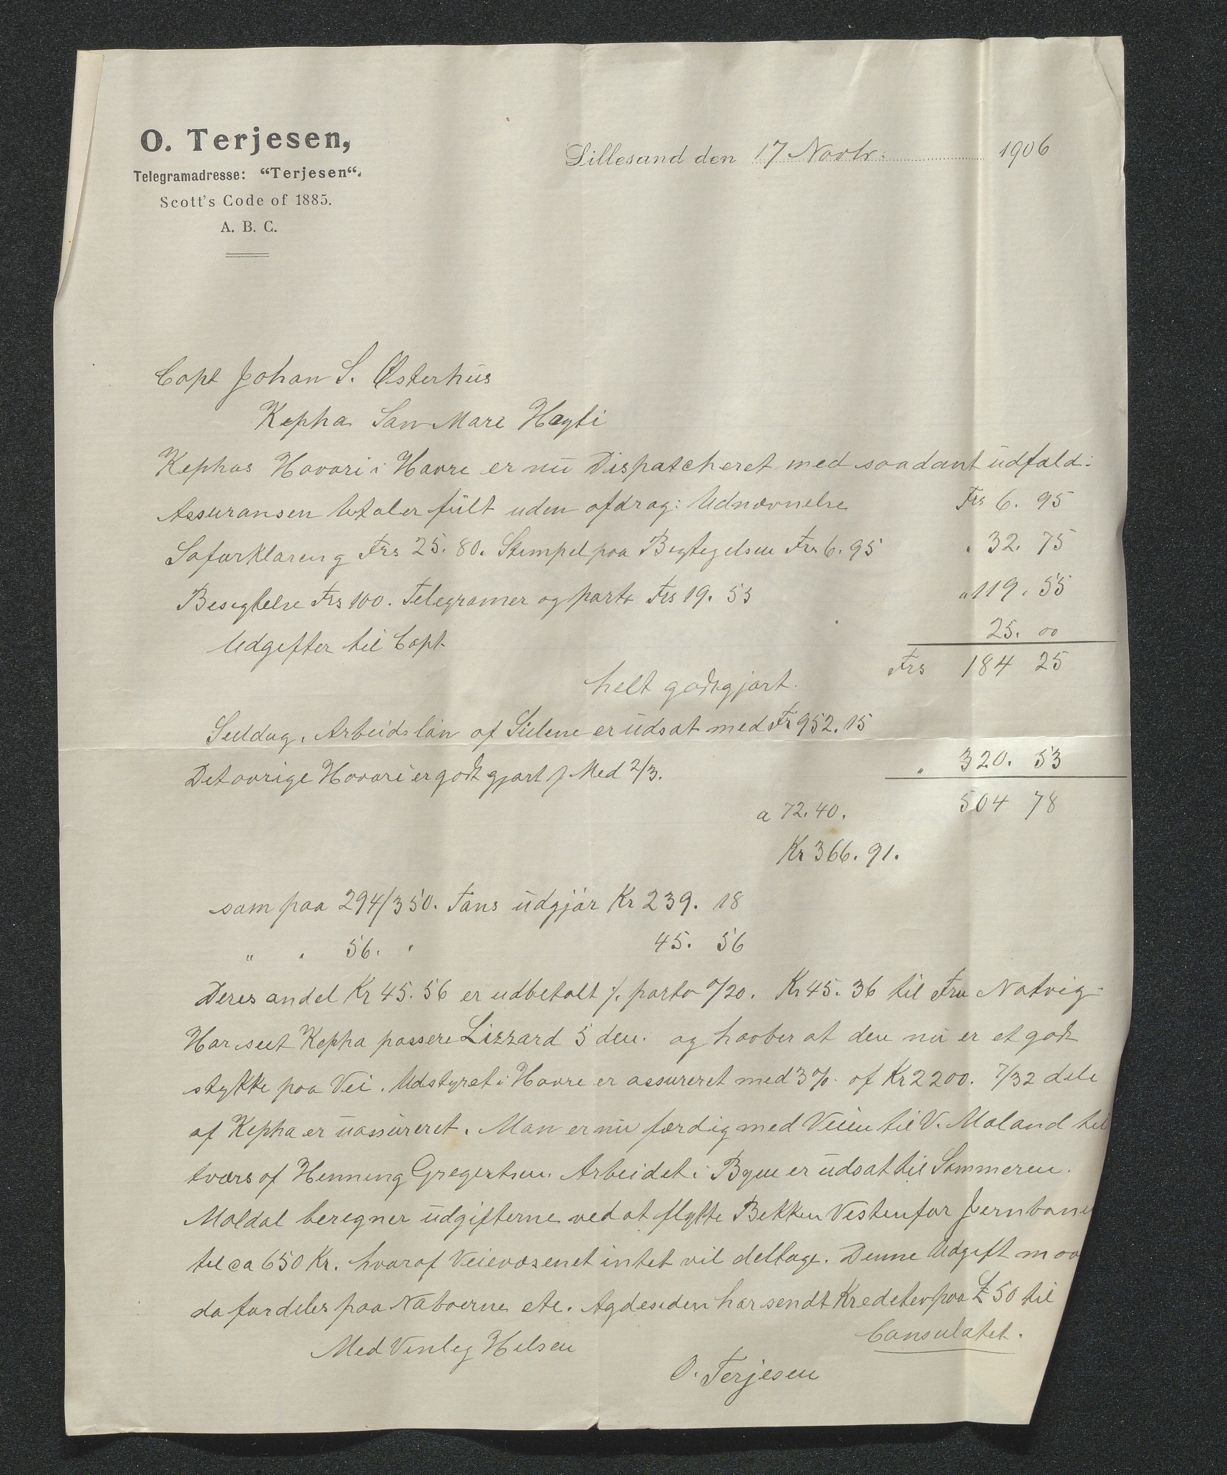 O. Terjesen,
Telegramadresse: “Terjesen“.
Scott's Code of 1885.
A. B. C.
Lillesand den 17 Novbr. 1906
Capt Johan S. Østerhus
Kepha San Marc Hayti
Kephas Havari i Havre er nu Dispatcheret med saadant udfald:
Assuransen btaler fult uden afdrag: Udnævnelse Frs 6. 95
Søforklareng Frs 25. 80. Stempel paa Begtegelsen Frs 6. 95 " 32. 75
Besigtelse Frs 100. Telegramer og porto Frs 19. 55 " 119. 55
Udgifter til Capt. 25. 00
Frs 184 25
helt godtgjort.
Seildug. Arbeidsløn af Seilene er udsat med Fr 952. 15
Det øvrige Havari er godt gjort / Med 2/3. " 320. 53
a 72. 40. 504 78
Kr 366. 91.
som paa 294/350. Tons udgjør Kr 239. 18
" " 56. " 45. 56
Deres andel Kr 45. 56 er udbetalt ./. porto "/20. Kr 45. 36 til Fru Natvig
Har seet Kepha passere Lizzard 5 den. og haaber at den nu er et godt
stykke paa Vei. Udstyret i Havre er assureret med 3% af Kr 2200. 7/32 dele
af Kepha er uassureret. Man er nu færdig med Veien til V. Moland til
tværs af Henning Gregertsen. Arbeidet i Byen er udsat til Sommeren.
Maldal beregner udgifterne ved at flytte Bekken Vestenfor Jernbanen
til ca 650 Kr. hvoraf Veievæsenet intet vil deltage. Denne Udgift maa
da fordeles paa Naboerne etc. Agdesiden har sendt Kreditiv paa £ 50 til
Consulatet.
Med Venlig Hilsen
O. Terjesen